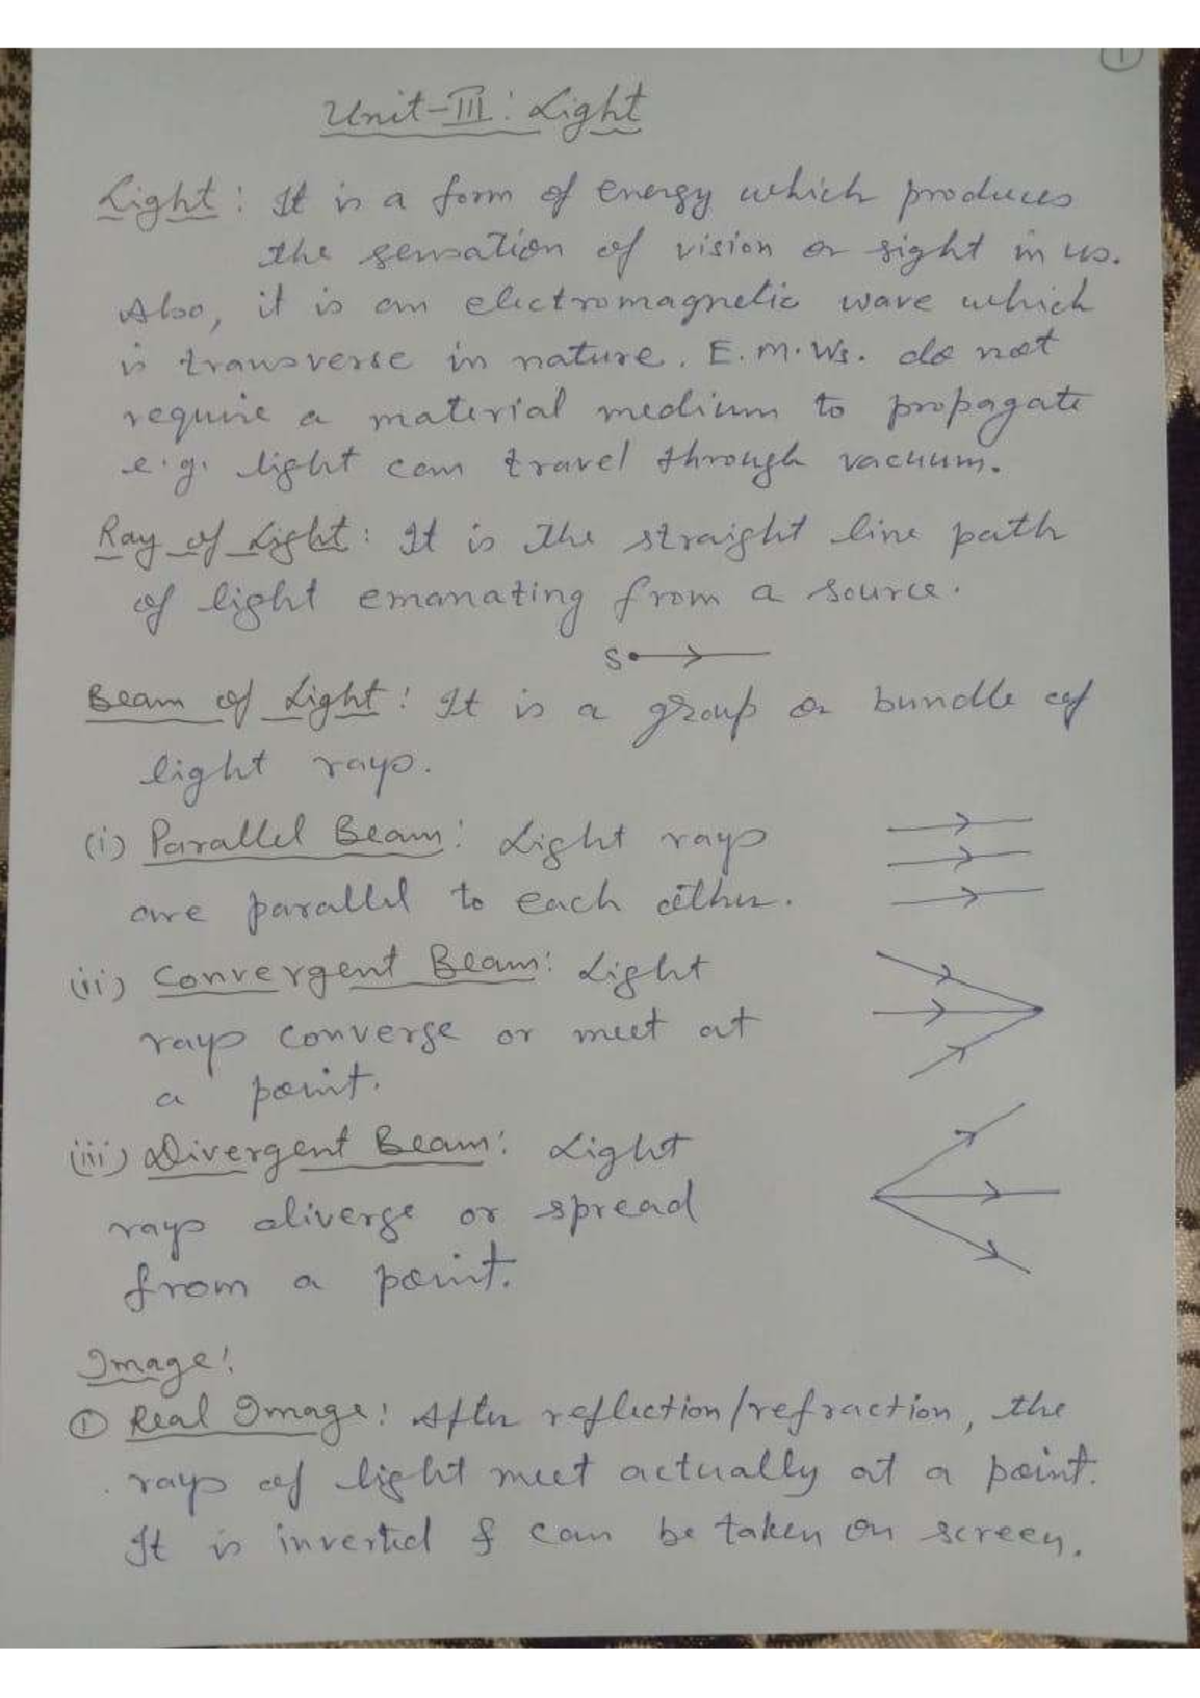 1
Unit-III: Light
Light: It is a form of energy which produces
the sensation of vision or sight in us.
Also, it is an electromagnetic wave which
is transverse in nature. E.M.Ws. do not
require a material medium to propagate
e.g. light can travel through vacuum.
Ray of Light: It is the straight line path
of light emanating from a source.
S
Beam of Light: It is a group or bundle of
light rays.
(i) Parallel Beam: Light rays
are parallel to each other.
(ii) Convergent Beam: Light
rays converge or meet at
a point.
(iii) Divergent Beam: Light
rays diverge or spread
from a point.
Image:
① Real Image: After reflection/refraction, the
rays of light meet actually at a point.
It is inverted & can be taken on screen.